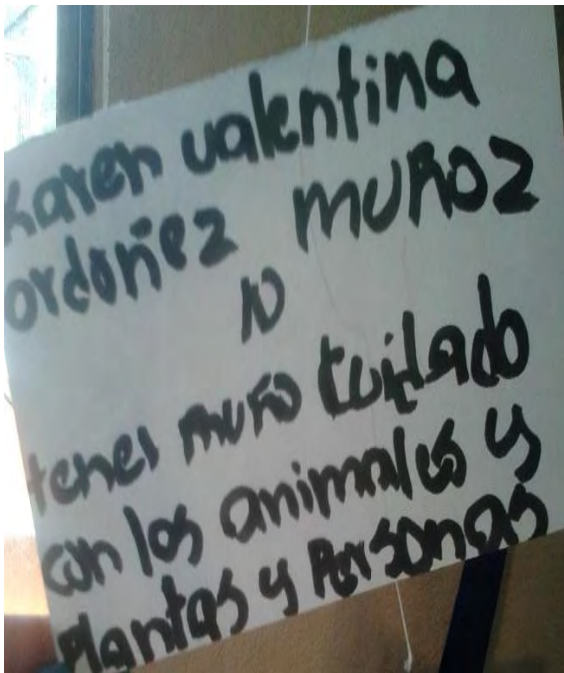 karen valentina
ordoñez muñoz
10
tener muño cuidado
con los animales y
plantas y personas